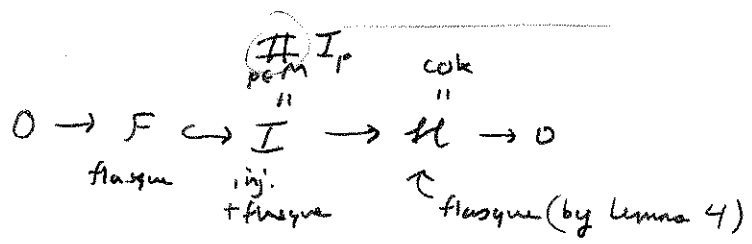 ∏ I_p
p∈M
cok
" "
0 → F ↪ I → H → 0
flasque inj. + flasque flasque (by Lemma 4)